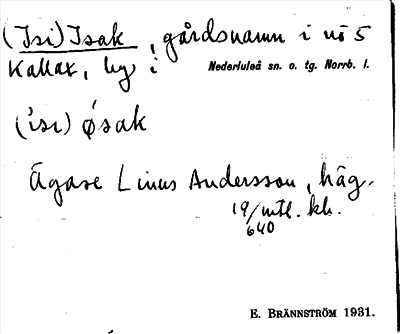 (Isi) Isak, gårdsnamn i nö 5
Kallax, by i Nederluleå sn. o. tg. Norrb. l.
('isi) øsak
Ägare Linus Andersson, häg.
19/640 mtl. kh.
E. BRÄNNSTRÖM 1931.